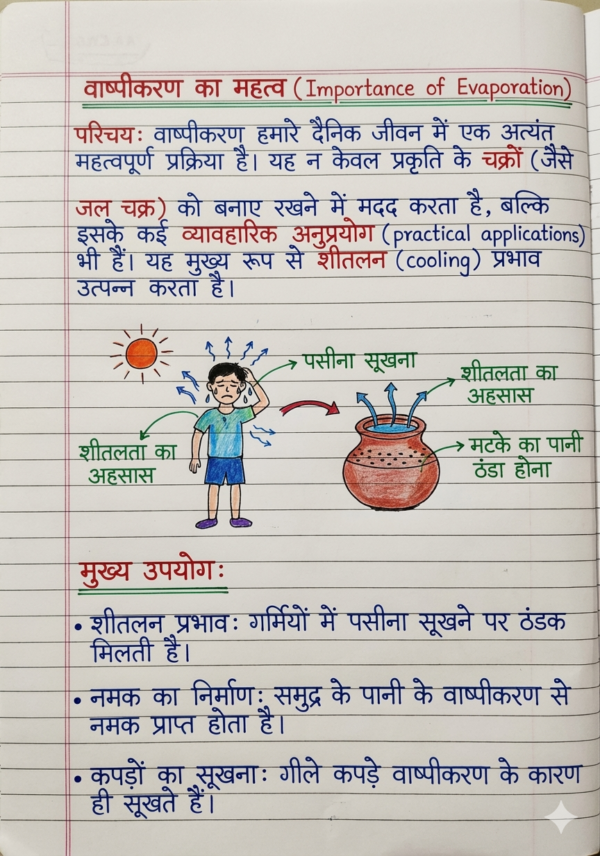 वाष्पीकरण का महत्व (Importance of Evaporation)
परिचय: वाष्पीकरण हमारे दैनिक जीवन में एक अत्यंत
महत्वपूर्ण प्रक्रिया है। यह न केवल प्रकृति के चक्रों (जैसे
जल चक्र) को बनाए रखने में मदद करता है, बल्कि
इसके कई व्यावहारिक अनुप्रयोग (practical applications)
भी हैं। यह मुख्य रूप से शीतलन (cooling) प्रभाव
उत्पन्न करता है।
पसीना सूखना
शीतलता का
अहसास
शीतलता का
अहसास
मटके का पानी
ठंडा होना
मुख्य उपयोग:
• शीतलन प्रभाव: गर्मियों में पसीना सूखने पर ठंडक
मिलती है।
• नमक का निर्माण: समुद्र के पानी के वाष्पीकरण से
नमक प्राप्त होता है।
• कपड़ों का सूखना: गीले कपड़े वाष्पीकरण के कारण
ही सूखते हैं।